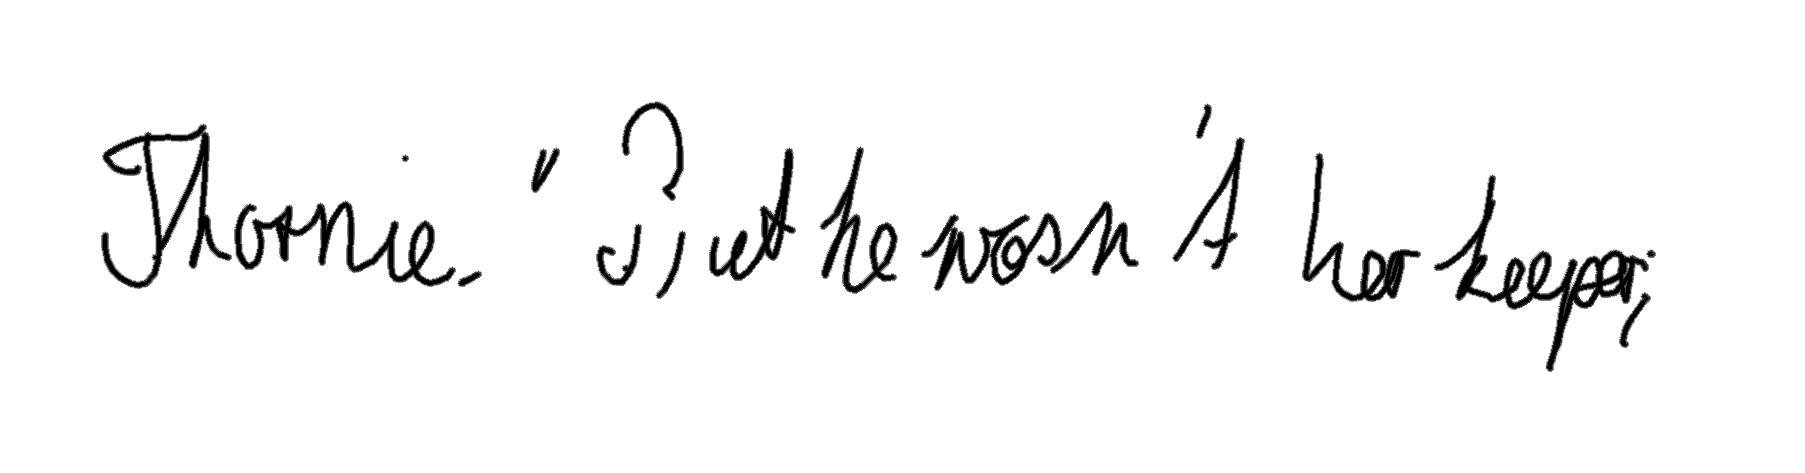 Thornie." But he wasn't her keeper;